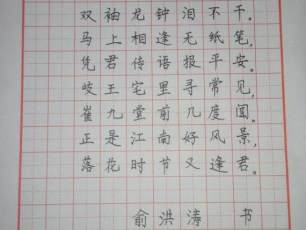 双袖龙钟泪不干。
马上相逢无纸笔，
凭君传语报平安。
岐王宅里寻常见，
崔九堂前几度闻。
正是江南好风景，
落花时节又逢君。
俞洪涛 书